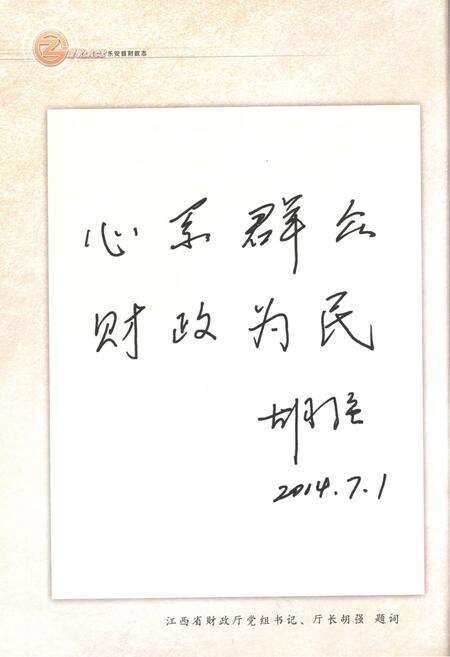 乐安县财政志
心系群众
财政为民
胡强
2014.7.1
江西省财政厅党组书记、厅长胡强 题词